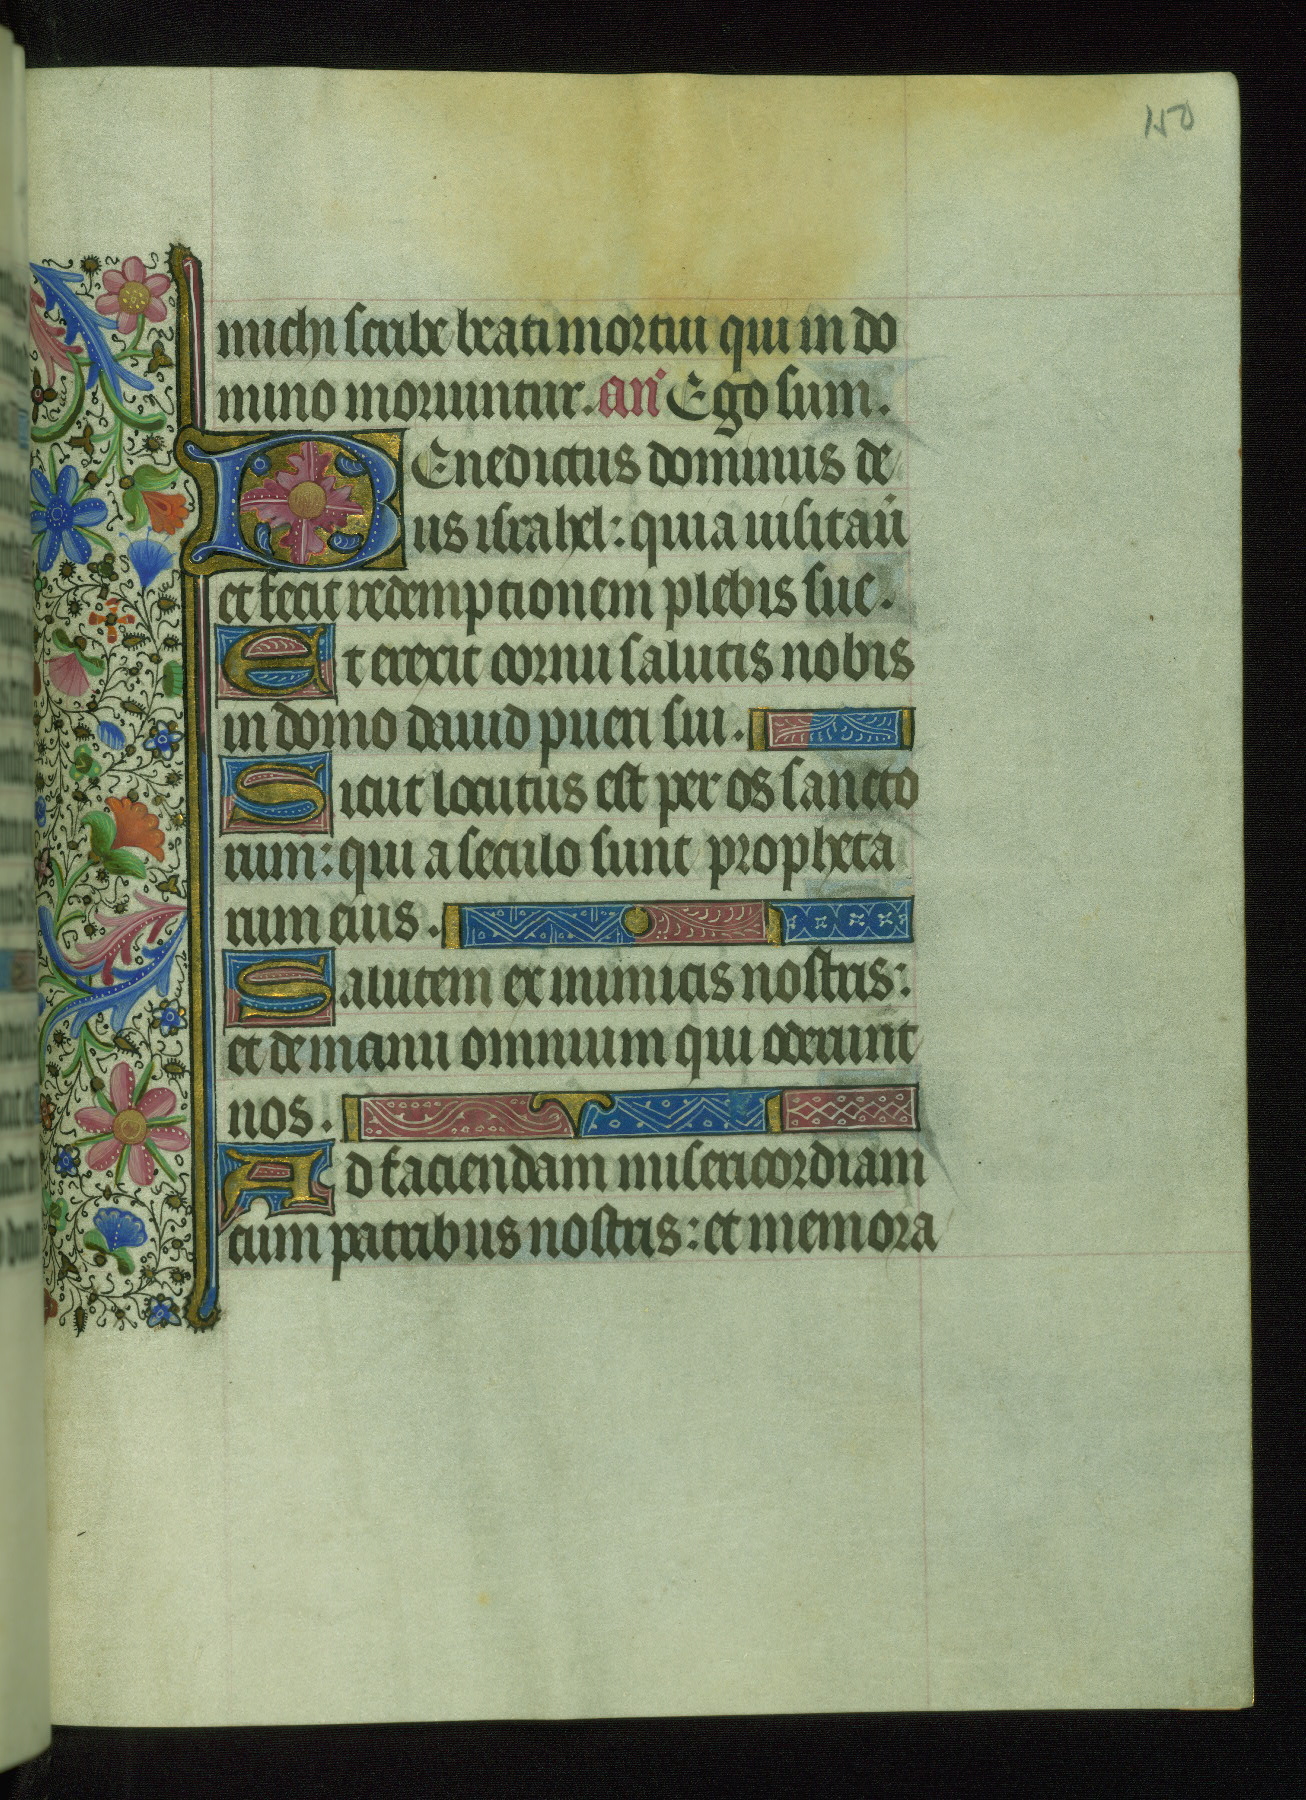 150
michi scribe beati mortui qui in do
mino moriuntur. an̄ Ego sum.
BEnedictus dominus de
us israhel: quia uisitaū
et fecit redemptionem plebis sue.
Et erexit cornu salutis nobis
in domo dauid pueri sui.
Sicut locutus est per os sancto
rum: qui a seculo sunt propheta
rum eius.
Salutem ex inimicis nostris:
et de manu omnium qui oderunt
nos.
Ad faciendam misericordiam
cum patribus nostris: et memora